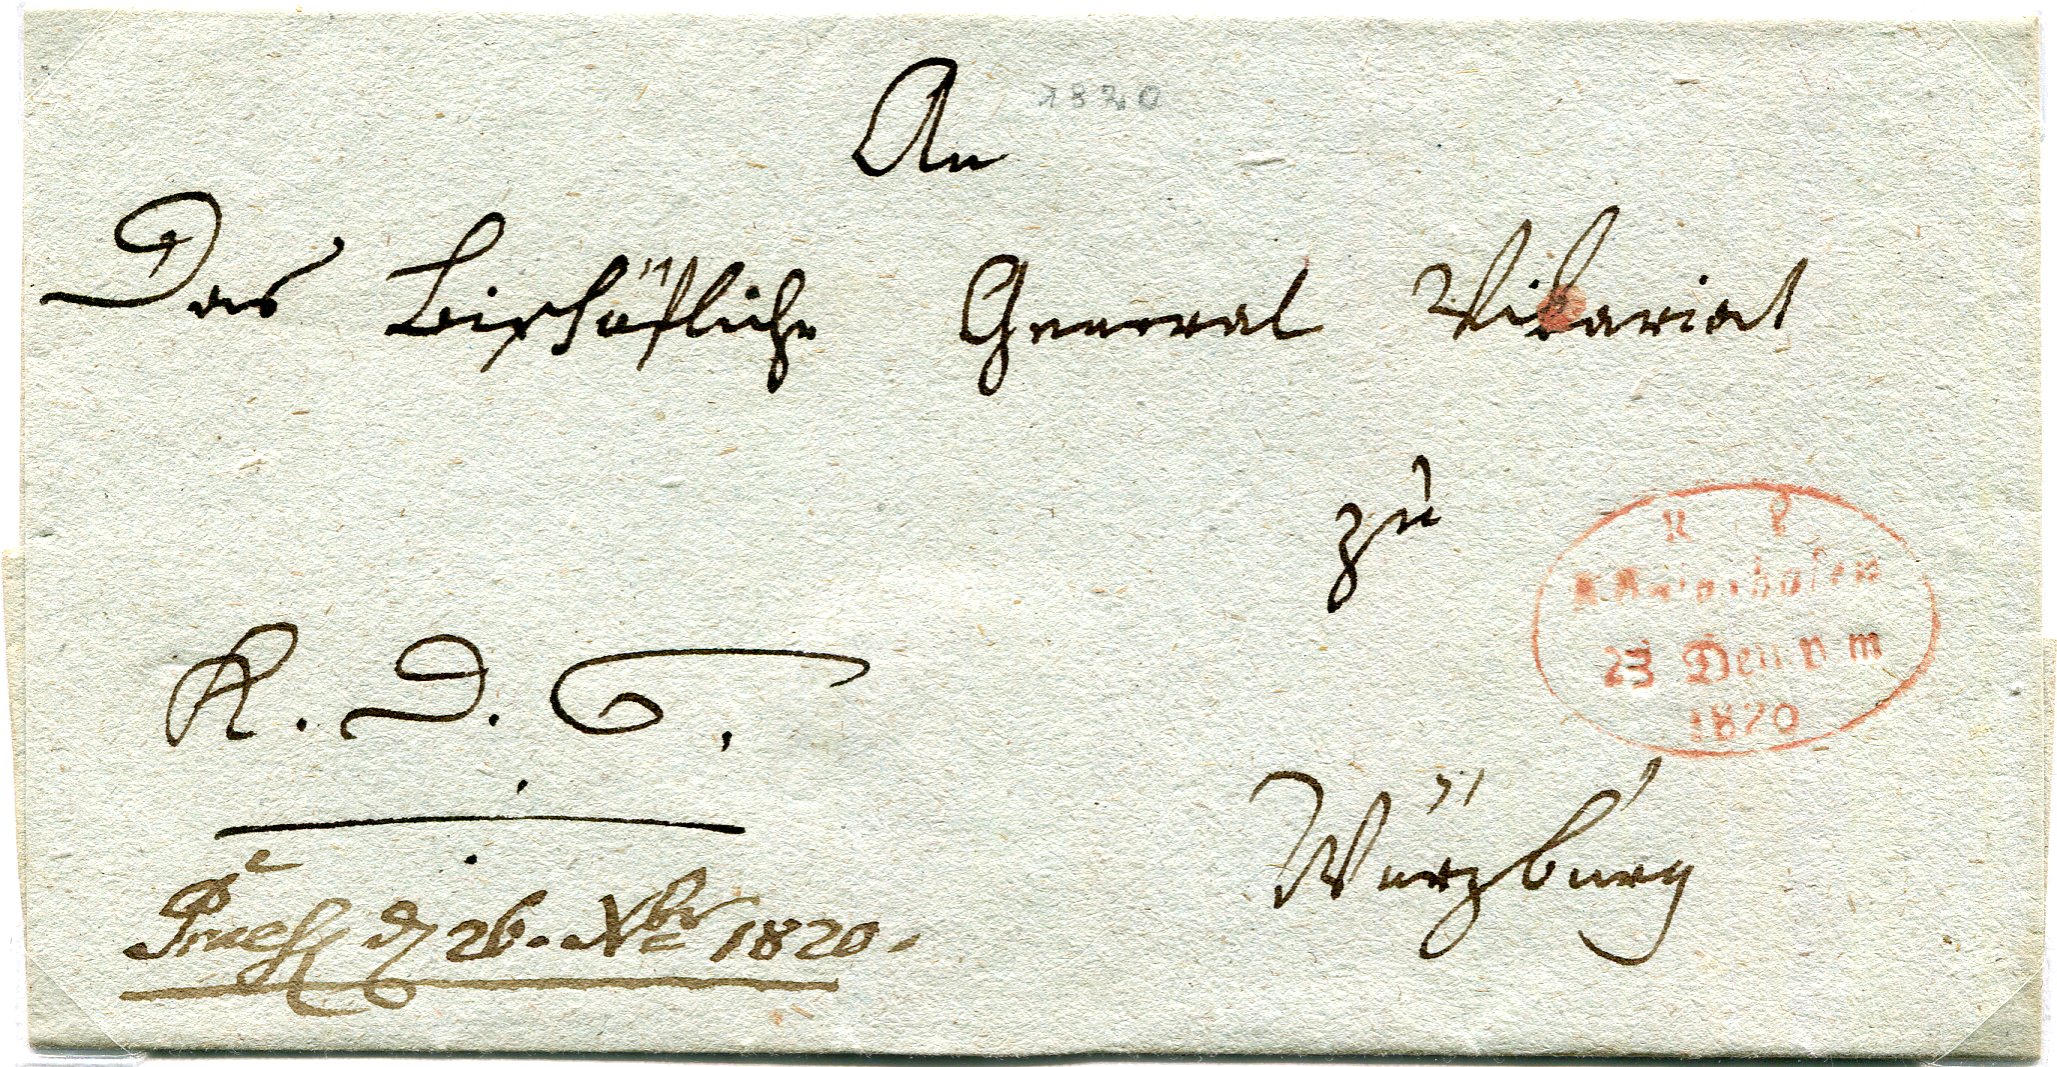 1820
An
Das Bischöfliche General Vikariat
zu
K. D. S.
Würzburg
Praes d 26. Nbr 1820.
Königshofen
23 Nov
1820